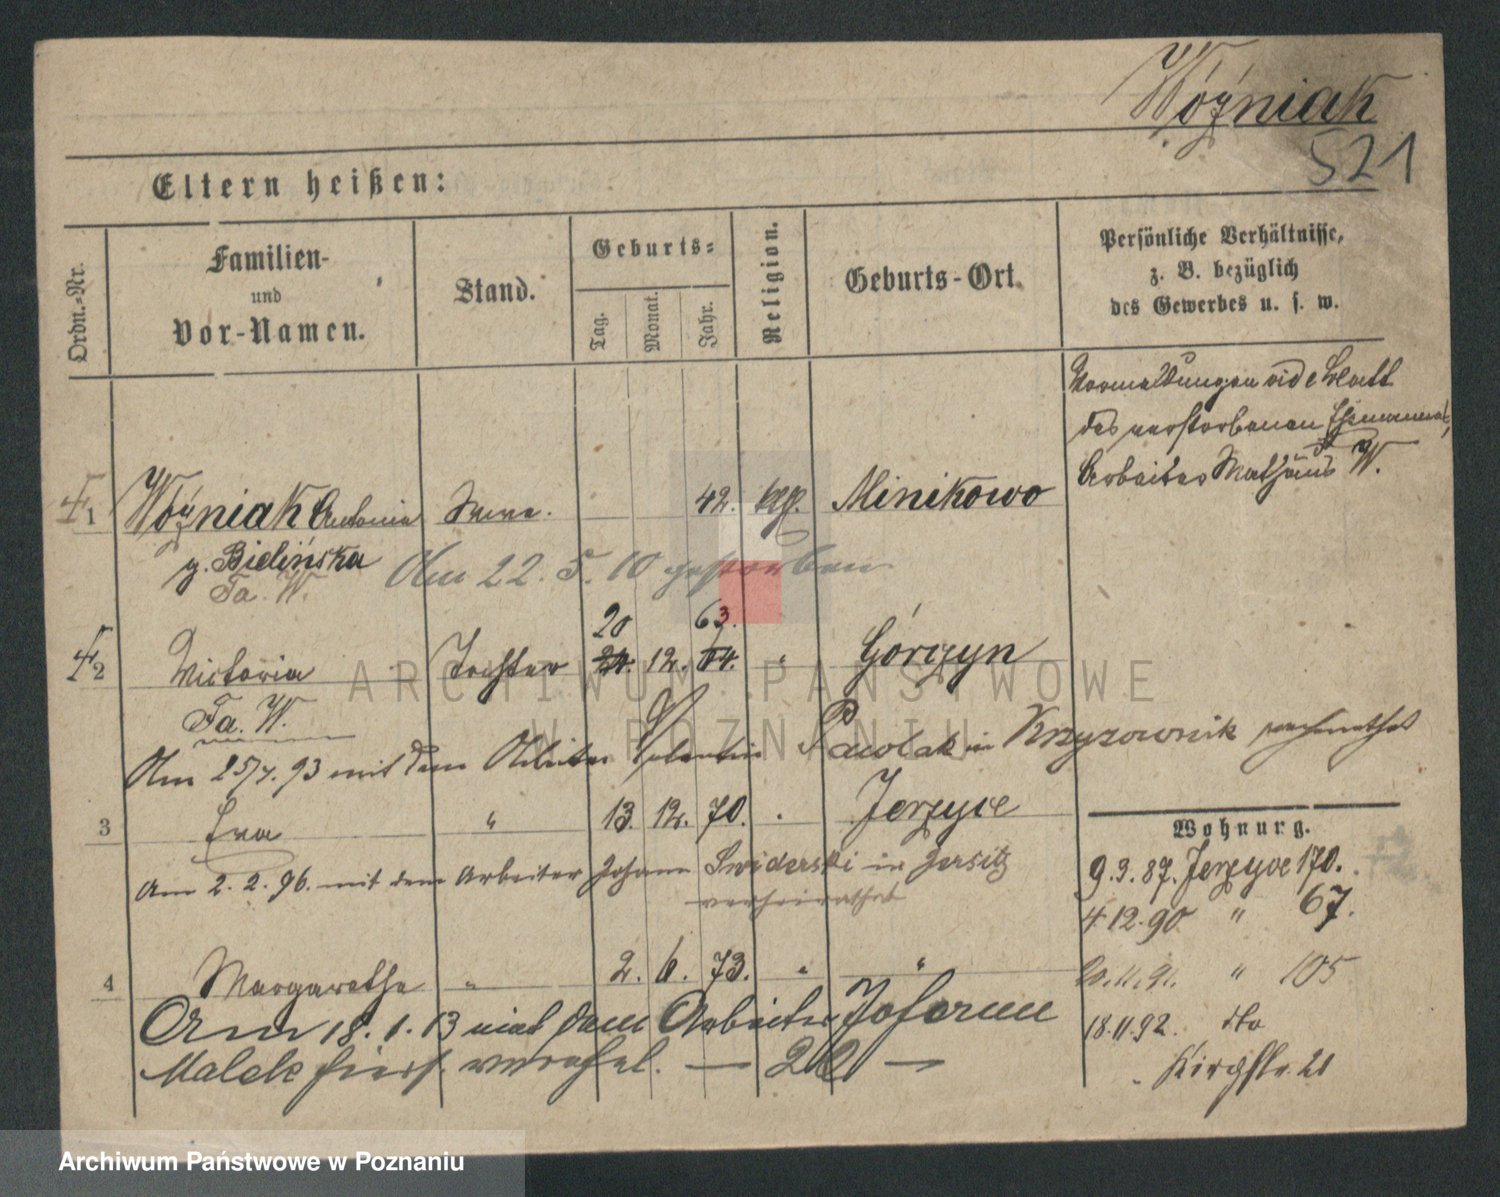 Wóźniak
521
Eltern heißen:
Ordn.-Nr.
Familien-
und
Vor-Namen.
Stand.
Geburts-
Tag.
Monat.
Jahr.
Religion.
Geburts-Ort.
Persönliche Verhältnisse,
z. B. bezüglich
des Gewerbes u. s. w.
des verstorbenen
Arbeiter Mathäus W.
1 Wóźniak Antonie 42. Minikowo
g. Bielińska
Am 22. 5. 10 gestorben
Fa. W.
20 63.
2 Victoria Tochter 24. 12. 64. " Górczyn
Fa. W.
Am 25/7. 93 mit dem Arbeiter Valentin Pawolak in Krzyzownik
3 Eva " 13. 12. 70. . Jerzyce
Am 2. 2. 96. mit dem Arbeiter Johann Swiderski in Jersitz
verheirathet
4 Margarethe " 2. 6. 73. " "
Am 18. 1. 13 mit dem Arbeiter Johann
Malek hiers. verehel.
Wohnung.
9.3.87. Jerzyce 170.
4.12.90 " 67.
20.11.91. " 105
18.11.92. dto
Kirchstr. 21
ARCHIWUM PAŃSTWOWE
W POZNANIU
Archiwum Państwowe w Poznaniu